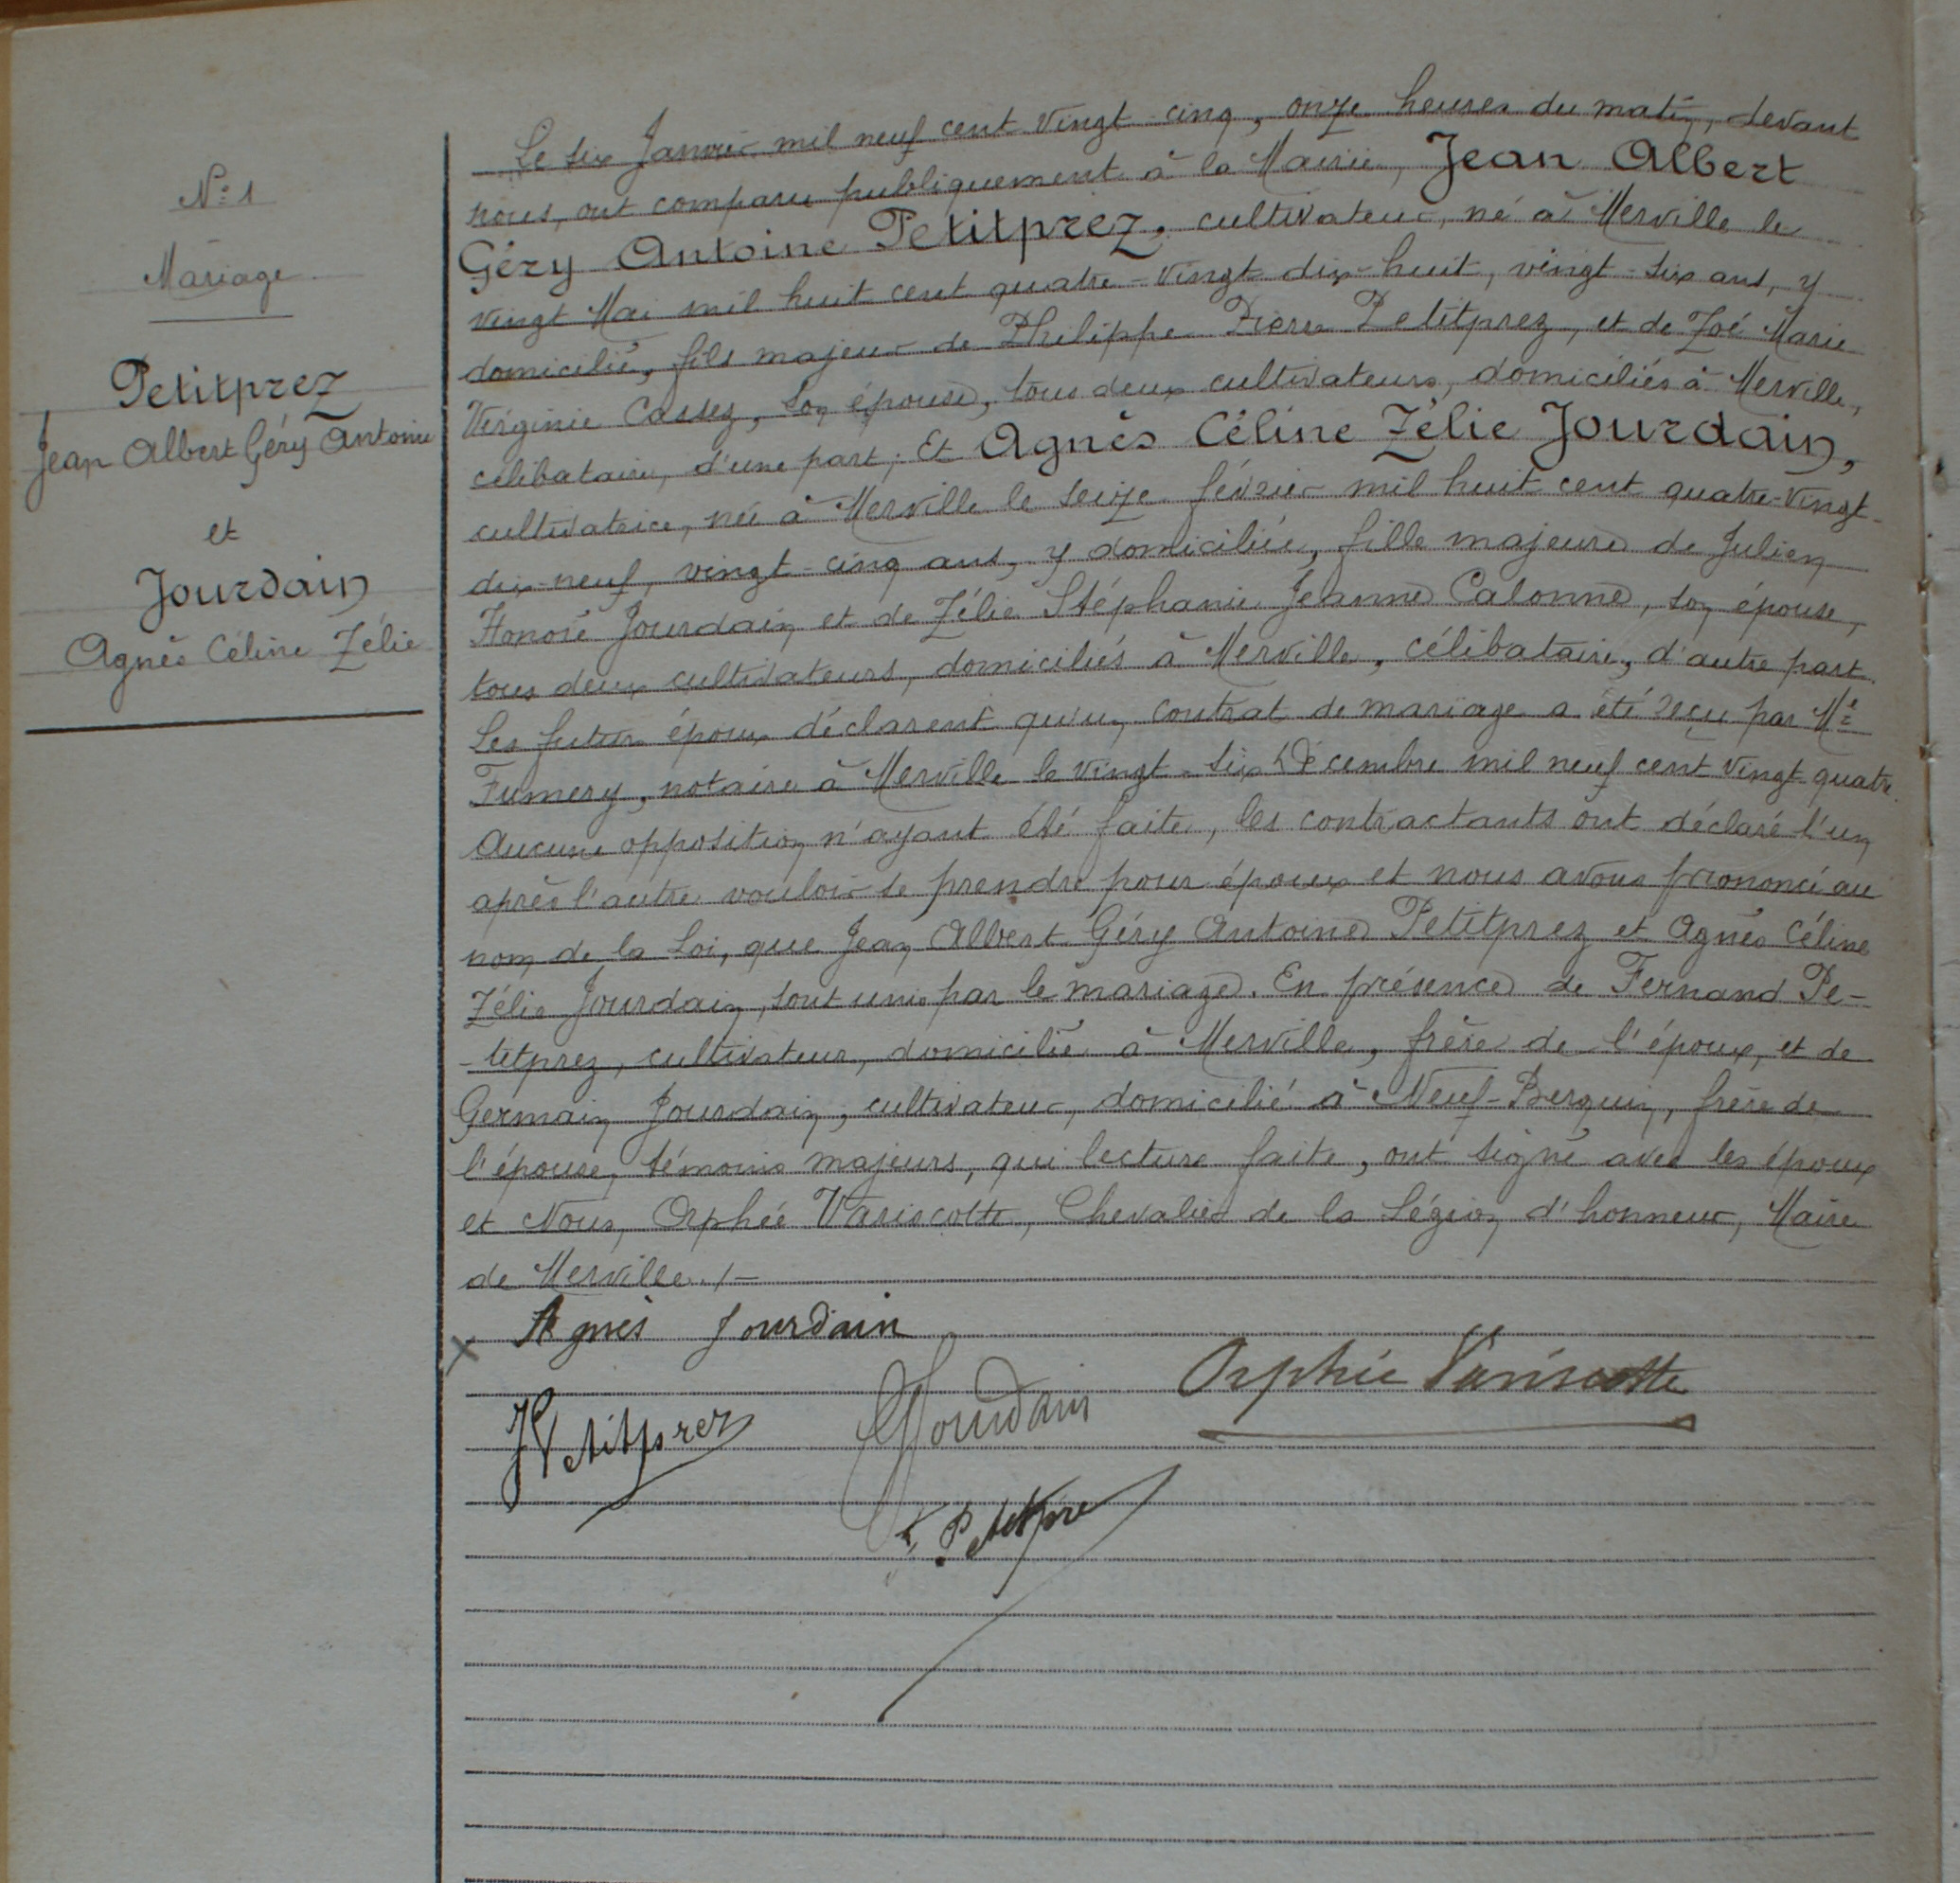 N° 1
Mariage
Petitprez
Jean Albert Géry Antoine
et
Jourdain
Agnès Céline Zélie
Le six Janvier mil neuf cent vingt-cinq, onze heures du matin, devant
nous, ont comparu publiquement à la Mairie, Jean Albert
Géry Antoine Petitprez, cultivateur, né à Merville le
vingt Mai mil huit cent quatre-vingt dix-huit, vingt-six ans, y
domicilié, fils majeur de Philippe Pierre Petitprez, et de Zoé Marie
Virginie Cassez, son épouse, tous deux cultivateurs, domiciliés à Merville,
célibataire, d'une part; Et Agnès Céline Zélie Jourdain,
cultivatrice, née à Merville le seize février mil huit cent quatre-vingt-
dix-neuf, vingt-cinq ans, y domiciliée, fille majeure de Julien
Honoré Jourdain et de Zélie Stéphanie Jeanne Calonne, son épouse,
tous deux cultivateurs, domiciliés à Merville, célibataire, d'autre part.
Les futurs époux déclarent qu'un contrat de mariage a été reçu par Me
Fumery, notaire à Merville le vingt-six Décembre mil neuf cent vingt-quatre.
Aucune opposition n'ayant été faite, les contractants ont déclaré l'un
après l'autre vouloir se prendre pour époux et nous avons prononcé au
nom de la Loi, que Jean Albert Géry Antoine Petitprez et Agnès Céline
Zélie Jourdain, sont unis par le mariage. En présence de Fernand Pe-
-titprez, cultivateur, domicilié à Merville, frère de l'époux, et de
Germain Jourdain, cultivateur, domicilié à Neuf-Berquin, frère de
l'épouse, témoins majeurs, qui lecture faite, ont signé avec les époux
et Nous, Orphée Variscotte, Chevalier de la Légion d'honneur, Maire
de Merville ./-
Agnès Jourdain
Orphée Variscotte
JPetitprez
GJourdain
F. Petitprez